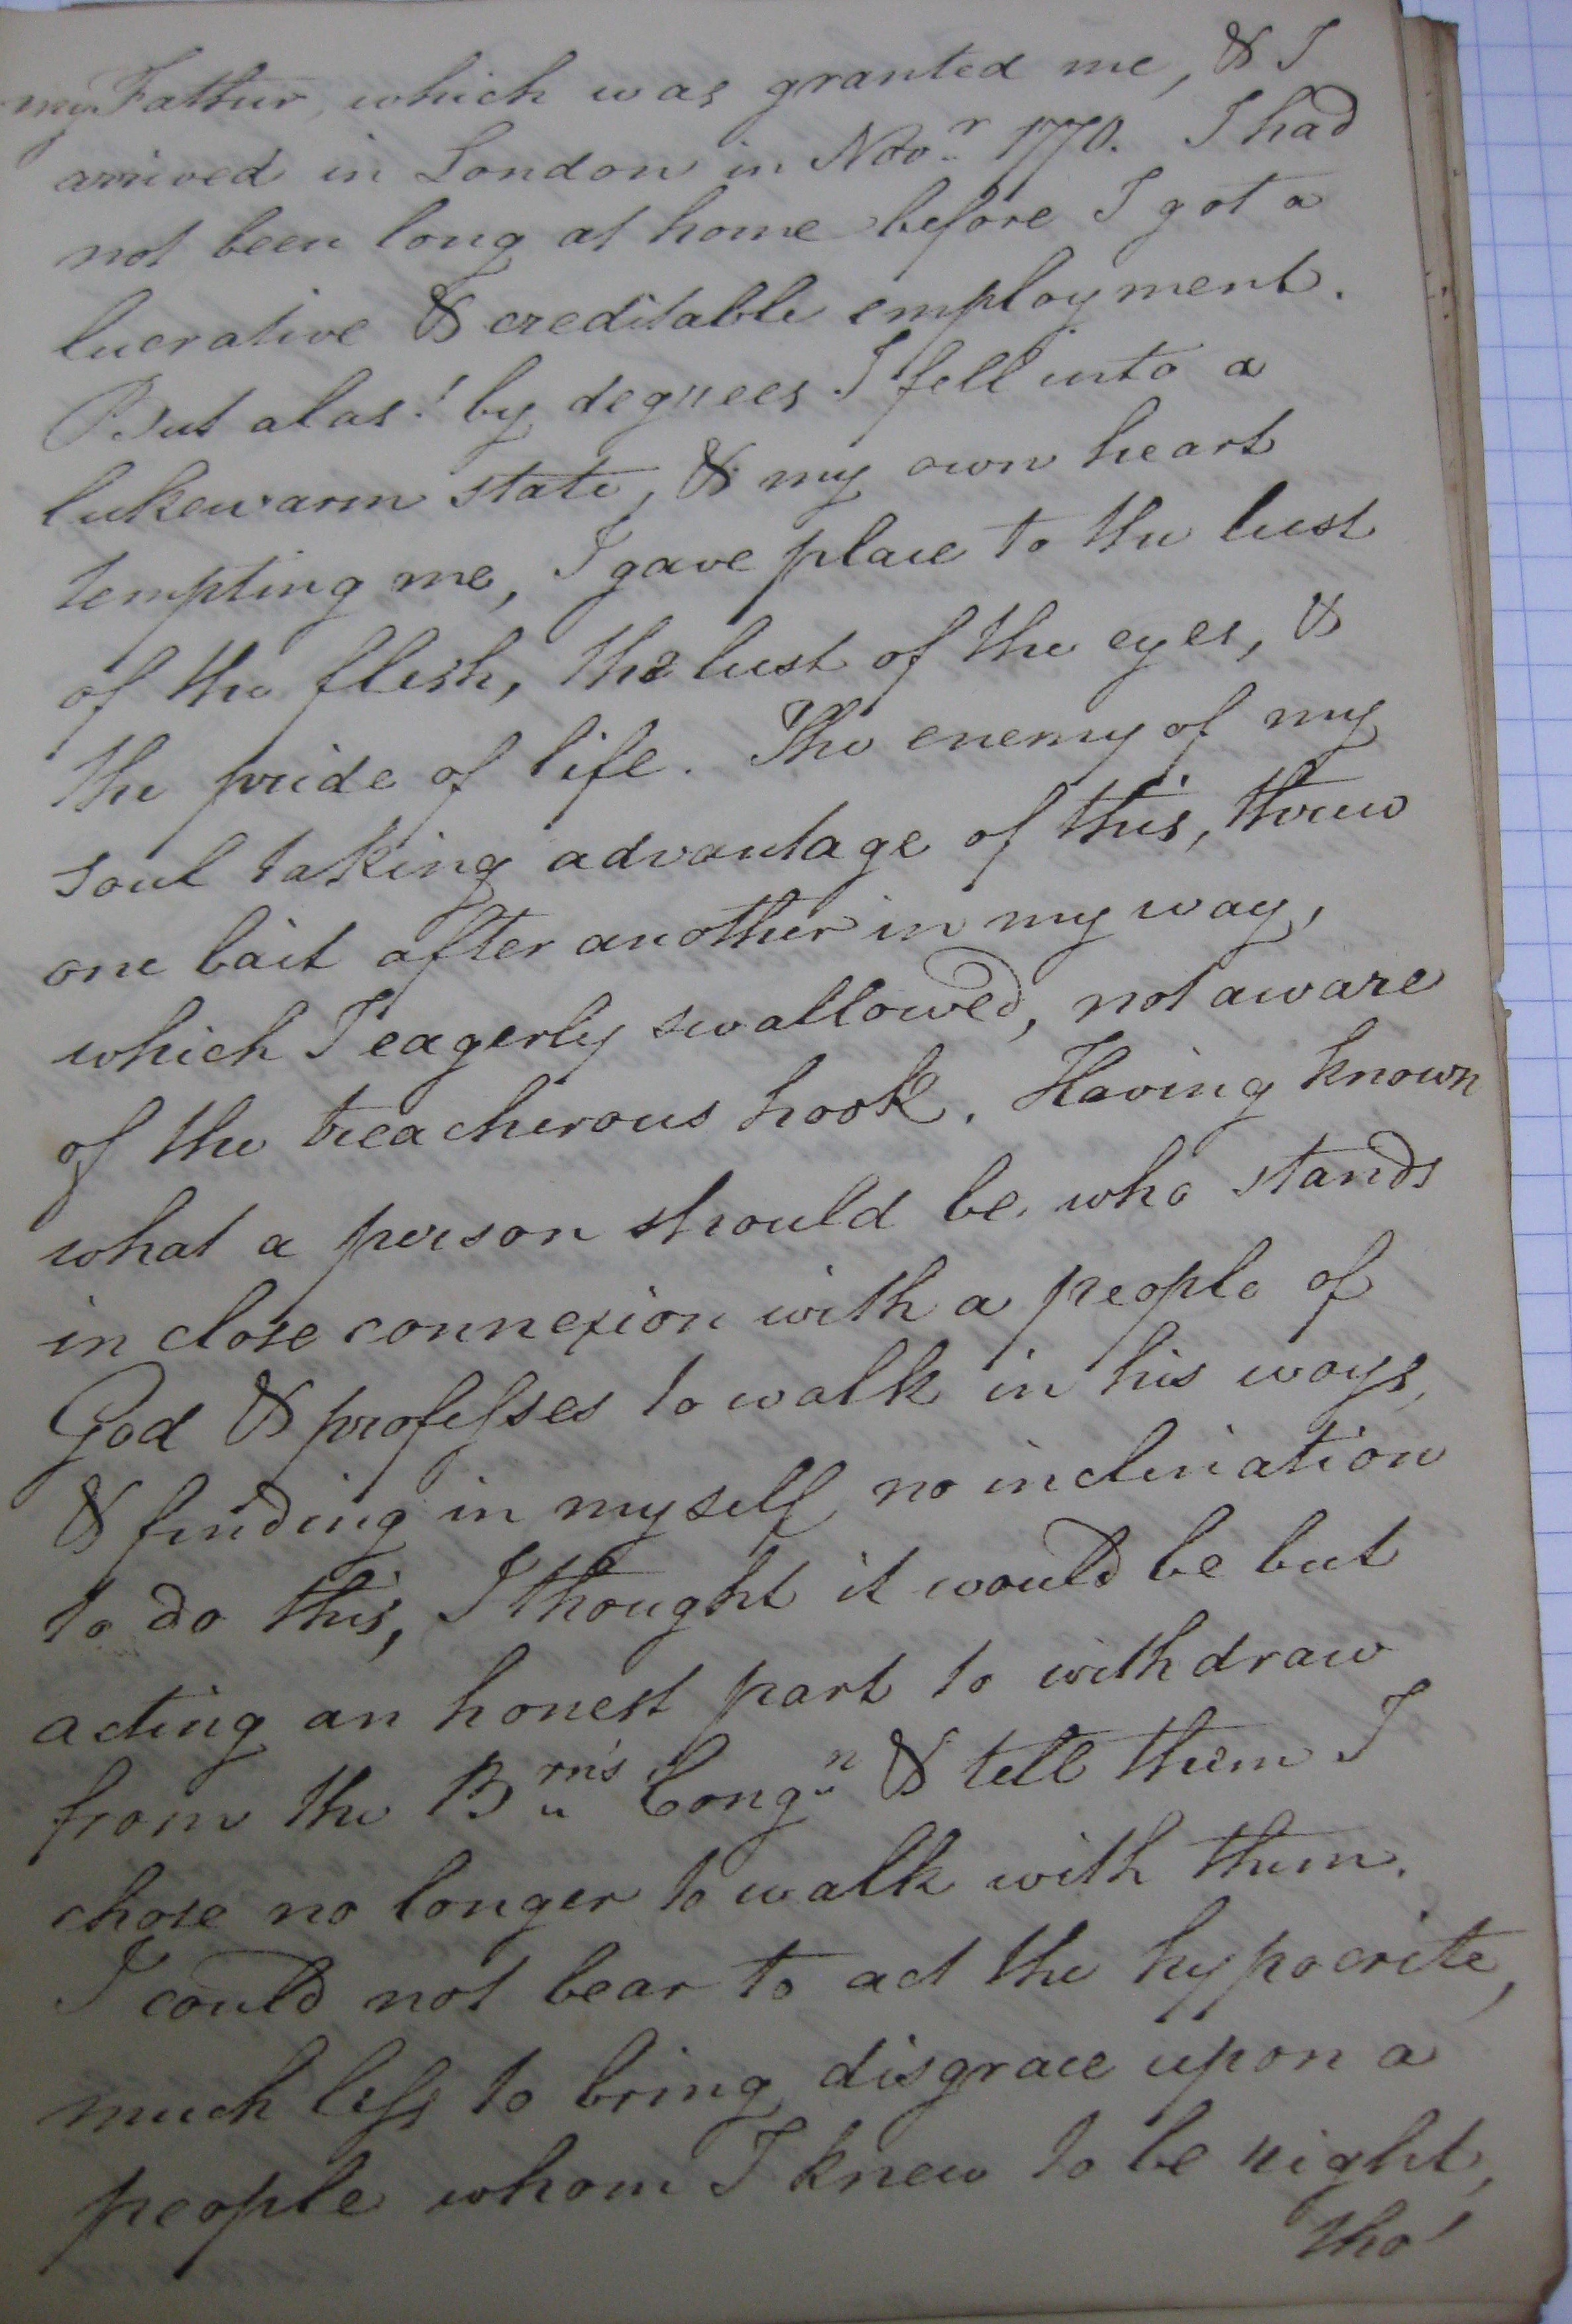 my Father, which was granted me, & I
arrived in London in Novr. 1770. I had
not been long at home before I got a
lucrative & creditable employment.
But alas! by degrees I fell into a
lukewarm state, & my own heart
tempting me, I gave place to the lust
of the flesh, the lust of the eyes, &
the pride of life. The enemy of my
soul taking advantage of this, threw
one bait after another in my way,
which I eagerly swallowed, not aware
of the treacherous hook. Having known
what a person should be, who stands
in close connexion with a people of
God & profeſses to walk in his ways,
& finding in myself no inclination
to do this, I thought it would be but
acting an honest part to withdraw
from the Brn's Congn & tell them I
chose no longer to walk with them.
I could not bear to act the hypocrite,
much leſs to bring disgrace upon a
people whom I knew to be right,
tho'